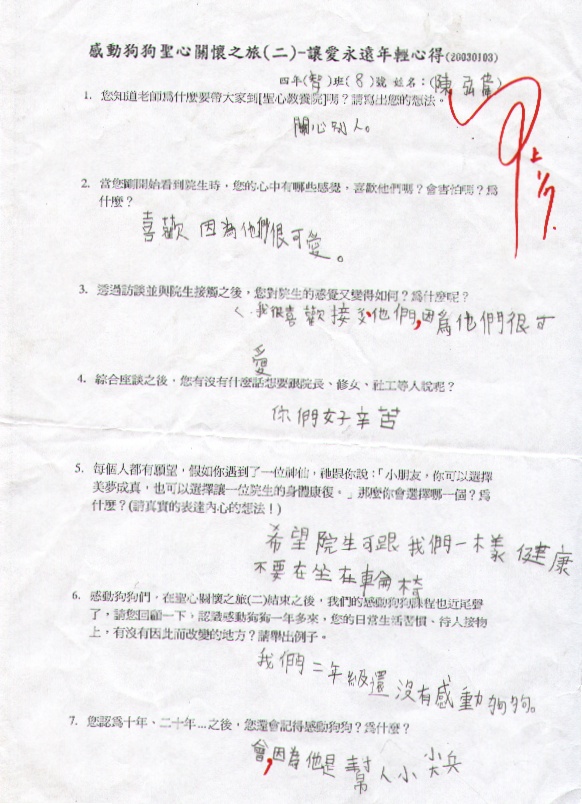 感動狗狗聖心關懷之旅(二)-讓愛永遠年輕心得(20030103)
四年(智)班(8)號 姓名：(陳弘
1. 您知道老師為什麼要帶大家到[聖心教養院]嗎？請寫出您的想法。
關心別人。
上 1/7
2. 當您剛開始看到院生時，您的心中有哪些感覺，喜歡他們嗎？會害怕嗎？為
什麼？
喜歡 因為他們很可愛。
3. 透過訪談並與院生接觸之後，您對院生的感覺又變得如何？為什麼呢？
我很喜歡接受他們,因為他們很可
愛
4. 綜合座談之後，您有沒有什麼話想要跟院長、修女、社工等人說呢？
你們好辛苦
5. 每個人都有願望，假如你遇到了一位神仙，祂跟你說：「小朋友，你可以選擇
美夢成真，也可以選擇讓一位院生的身體康復。」那麼你會選擇哪一個？為
什麼？(請真實的表達內心的想法！)
希望院生可跟我們一樣健康
不要在坐在輪椅
6. 感動狗狗們，在聖心關懷之旅(二)結束之後，我們的感動狗狗課程也近尾聲
了，請您回顧一下，認識感動狗狗一年多來，您的日常生活習慣、待人接物
上，有沒有因此而改變的地方？請舉出例子。
我們二年級還沒有感動狗狗。
7. 您認為十年、二十年…之後，您還會記得感動狗狗？為什麼？
會,因為他是幫人小尖兵